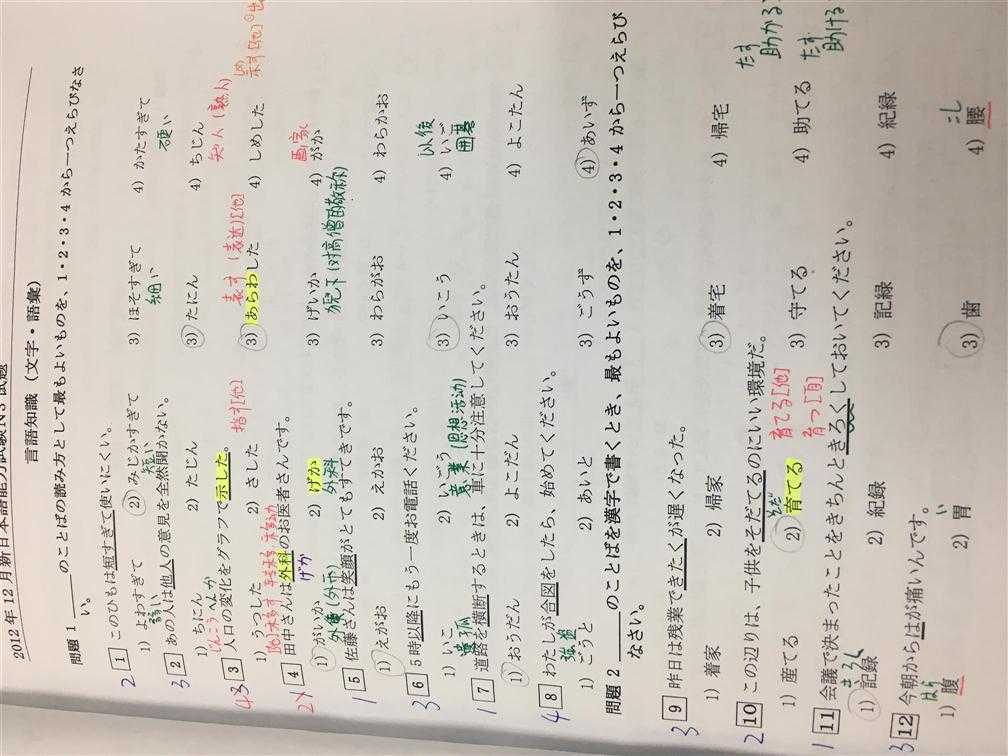 2012年12月新日本語能力试验N3试题
言語知識（文字・語彙）
問題1 ＿＿＿のことばの読み方として最もよいものを、1・2・3・4から一つえらびなさ
い。
2 1 このひもは短すぎて使いにくい。
1) よわすぎて 2) みじかすぎて 3) ほそすぎて 4) かたすぎて
弱い 短い 細い 硬い
3 2 あの人は他人の意見を全然聞かない。
1) ちにん 2) たじん 3) たにん 4) ちじん
じんこう へんか 知人(熟人)
4 3 3 人口の変化をグラフで示した。 指す[他] 表す(表达)[他] しめ 示す[他]
1) うつした 2) さした 3) あらわした 4) しめした
2 4 田中さんは外科のお医者さんです。
げか 画家
1) がいか 2) げか 3) げいか 4) がか
外科 猊下(对高僧的敬称)
1 5 佐藤さんは笑顔がとてもすてきです。
1) えがお 2) えかお 3) わらがお 4) わらかお
3 6 5時以降にもう一度お電話ください。 以後
1) いこ 2) いごう 3) いこう 4) いご
(思想活动) 囲碁
1 7 道路を横断するときは、車に十分注意してください。
1) おうだん 2) よこだん 3) おうたん 4) よこたん
4 8 わたしが合図をしたら、始めてください。
1) ごうと 2) あいと 3) ごうず 4) あいず
問題2 ＿＿＿のことばを漢字で書くとき、最もよいものを、1・2・3・4から一つえらび
なさい。
3 9 昨日は残業できたくが遅くなった。
1) 着家 2) 帰家 3) 着宅 4) 帰宅
たす 助かる
2 10 この辺りは、子供をそだてるのにいい環境だ。
そだ 育てる[他] たす 助ける
1) 産てる 2) 育てる 3) 守てる 4) 助てる
育つ[自]
1 11 会議で決まったことをきちんときろくしておいてください。
きろく
1) 記録 2) 紀録 3) 記緑 4) 紀緑
3 12 今朝からはが痛いんです。
はら い こし
1) 腹 2) 胃 3) 歯 4) 腰